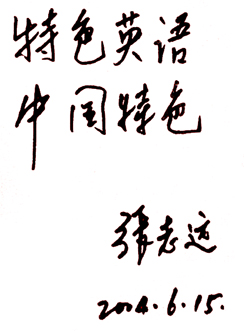 特色英语
中国特色
張志远
2004.6.15.